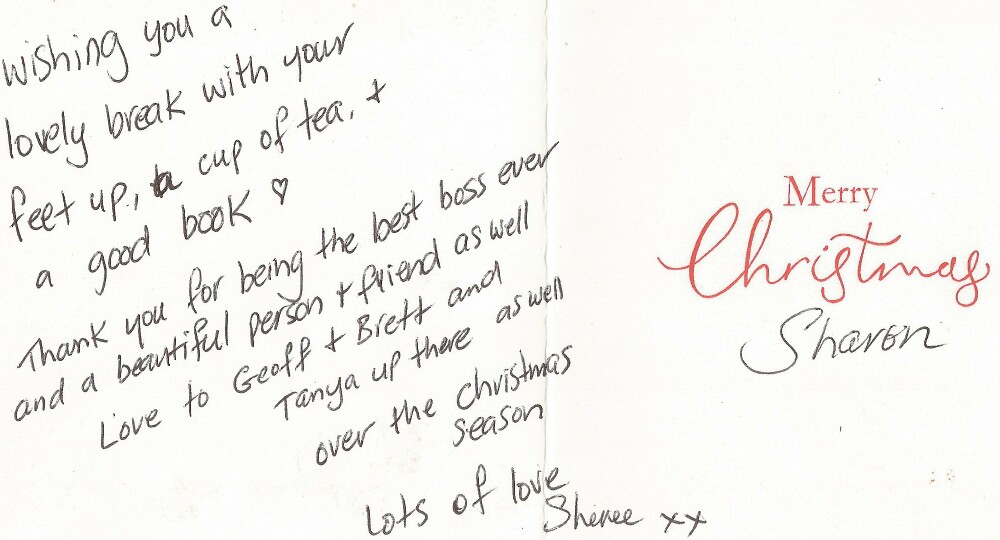 wishing you a
lovely break with your
feet up, a cup of tea, +
a good book ♡
Thank you for being the best boss ever
and a beautiful person + friend as well
Love to Geoff + Brett and
Tanya up there as well
over the christmas
season
Lots of love
Sheree xx
Merry
Christmas
Sharon